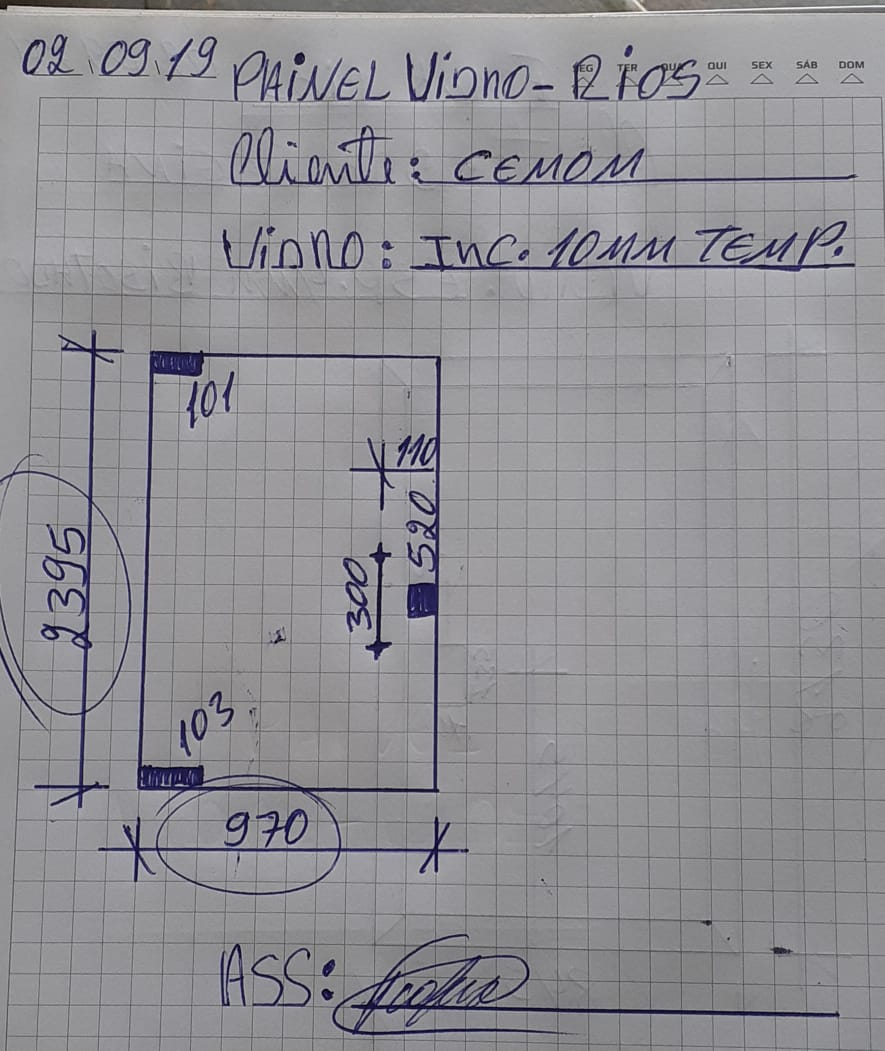 02.09.19 PAINEL VIDRO - RIOS
SEG TER QUA QUI SEX SÁB DOM
Cliente: CEMOM
VIDRO: INC. 10MM TEMP.
101
110
520
2395
300
103
970
ASS: